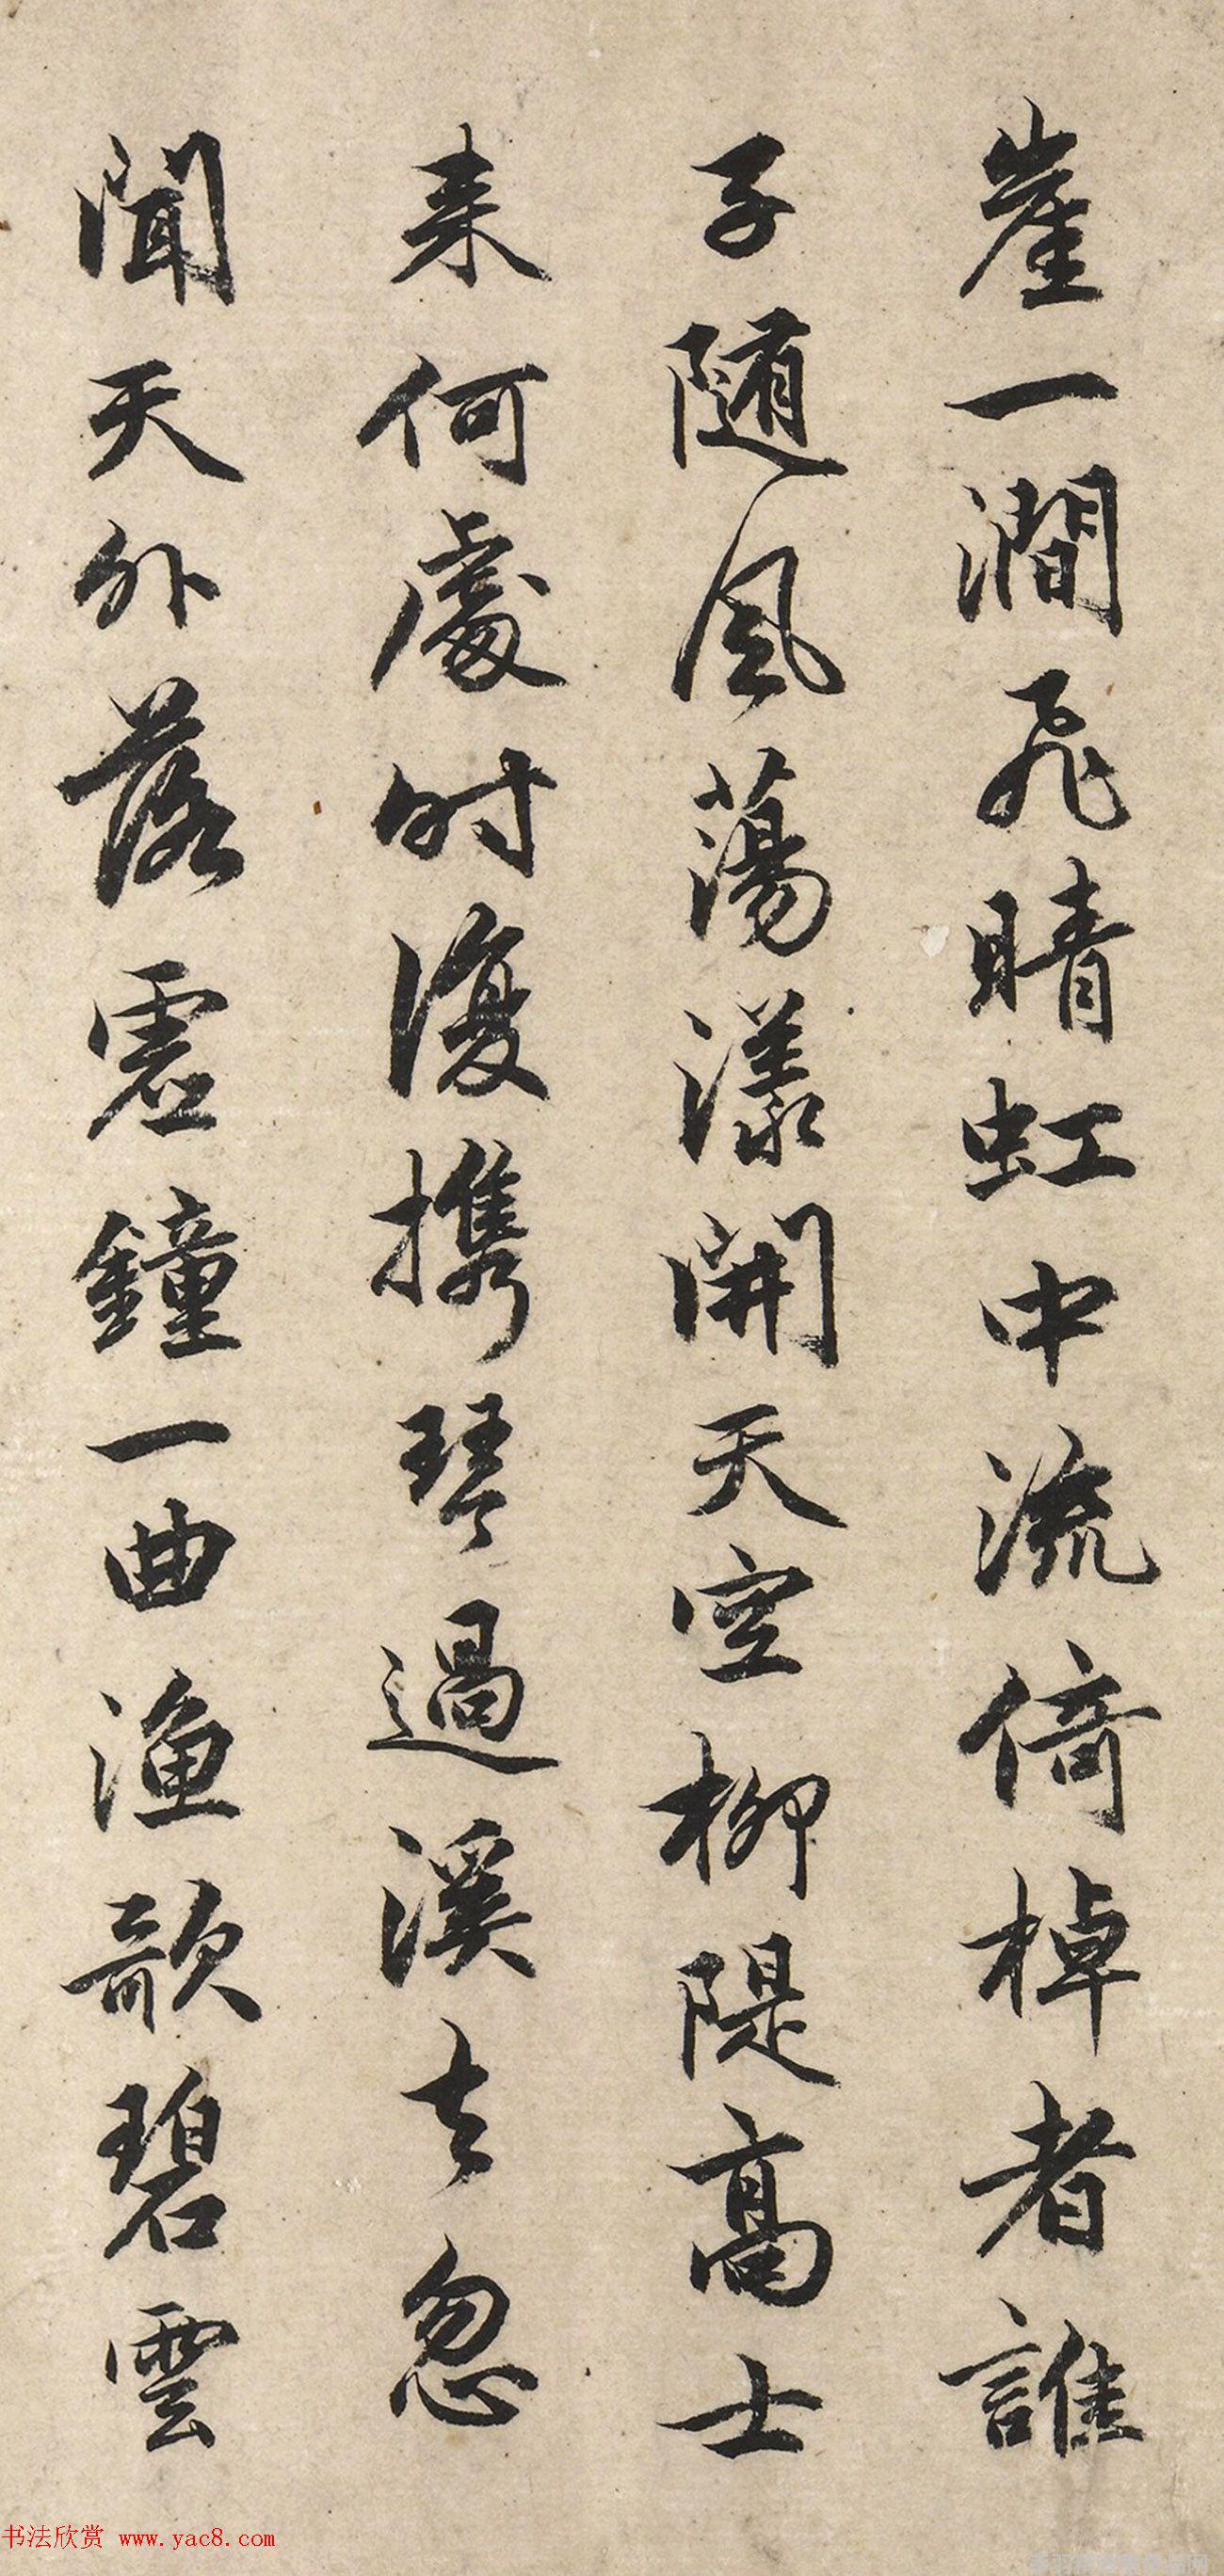 崖一澗飛晴虹中流倚棹者誰
子随風蕩漾開天空柳隄高士
来何處時復携琴過溪去忽
聞天外落霜鐘一曲漁歌碧雲
书法欣赏 www.yac8.com